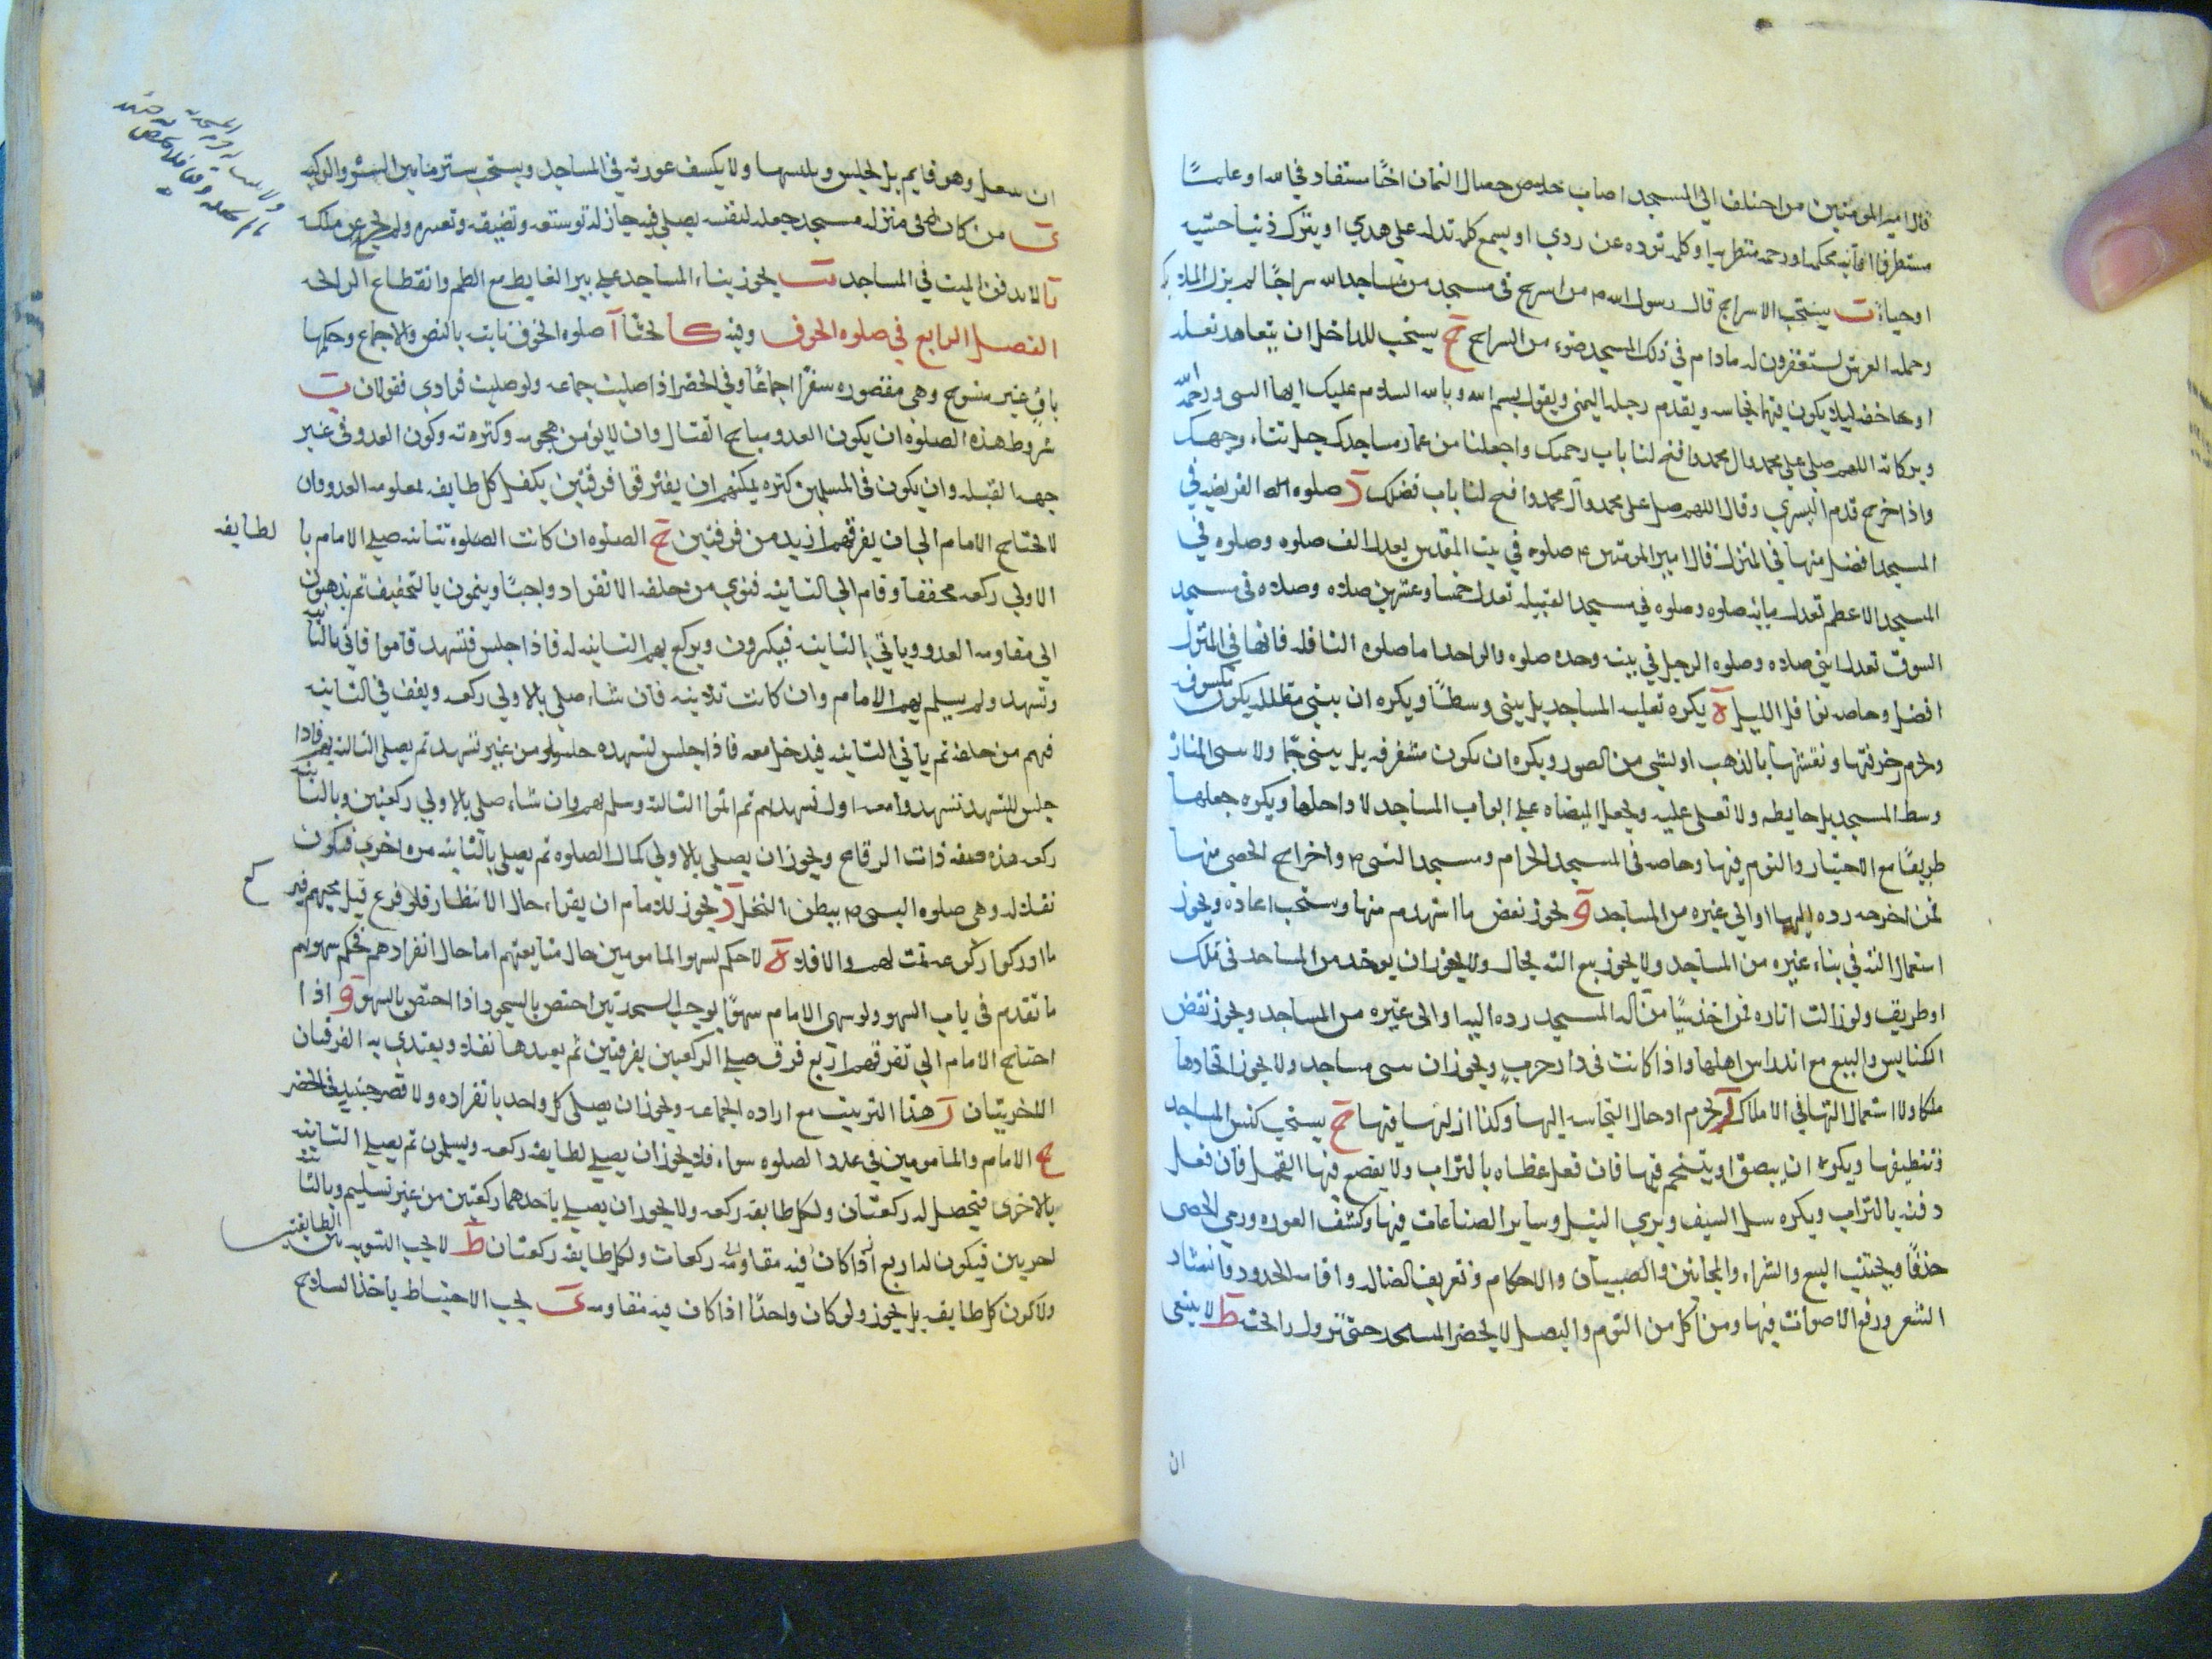 قال امير المومنين من اختلف الى المسجد اصاب احدى خصال الثمان اخا مستفاد في الله او علما
مستطرفا او آيه محكمه او رحمه منتظره او كلمه ترده عن ردي او يسمع كلمه تدله على هدي او يترك ذنبا خشيه
او حياء ب يستحب الاسراج قال رسول الله ص من اسرج في مسجد من مساجد الله سراجا لم يزل الملائكه
وحمله العرش يستغفرون له مادام في ذلك المسجد ضوء من السراج ج يستحب للداخل ان يتعاهد نعله
او خفه ليلا يكون فيها نجاسه ويقدم رجله اليمني ويقول بسم الله وبالله السلام عليك ايها النبي ورحمه الله
وبركاته اللهم صلي علي محمد وال محمد وافتح لنا باب رحمتك واجعلنا من عمار مساجدك جل ثناء وجهك
واذا خرج قدم اليسري وقال اللهم صل على محمد وآل محمد وافتح لنا باب فضلك د صلوه الفريضه في
المسجد افضل منها في المنزل قال امير المومنين ع صلوه في بيت المقدس يعدل الف صلوه وصلوه في
المسجد الاعظم تعدل مايه صلوه وصلوه في مسجد القبيله تعدل خمسا وعشرين صلاه وصلاه في مسجد
السوق تعدل اثني صلاه وصلوه الرجل في بيته وحده صلوه والواحد اما صلوه النافله فانها في المنزل
افضل وخاصه نوافل الليل ه يكره تعليه المساجد بل يبني وسطا ويكره ان يبني مظلله يكون مكشوف
ويحرم زخرفتها ونقشها بالذهب او لشي من الصور ويكره ان يكون مشرفه بل يبني جما ولا يبني المنار
وسط المسجد بل حايطه ولا تعلى عليه ويجعل الميضاه علي ابواب المساجد لا داخلها ويكره جعلها
طريقا مع الاختيار والنوم فيها وخاصه في المسجد الحرام ومسجد النبي ص واخراج الحصي منها
فمن اخرجه رده اليها او الي غيره من المساجد و يجوز نقض ما استهدم منها ويستحب اعاده ويجوز
استعمال الته في بناء غيره من المساجد ولا يجوز بيع الته بحال ولا يجوز ان يوخذ من المساجد في ملك
او طريق ولو زالت اثاره فمن اخذ شيا من آله المسجد رده اليه او الى غيره من المساجد ويجوز نقض
الكنايس والبيع مع اندراس اهلها واذا كانت في دار حرب ويجوز ان يبني مساجد ولا يجوز اتخاذها
ملكا ولا استعمال التها في الاملاك ز يحرم ادخال النجاسه اليها وكذا ازالتها فيها ح يستحب كنس المساجد
وتنظيفها ويكره ان يبصق او يتنخم فيها فان فعل غطاه بالتراب ولا يقصع فيها القمل فان فعل
دفنه بالتراب ويكره سل السيف وبري النبل وساير الصناعات فيها وكشف العوره ورمي الحصى
خذفا ويجتنب البيع والشراء والمجانين والصبيان والاحكام وتعريف الضاله واقامه الحدود وانشاد
الشعر ورفع الاصوات فيها ومن اكل من الثوم والبصل لا يحضر المسجد حتى تزول رائحته ط لا ينبغي
ان
ان ينعل وهو قايم بل يجلس ويلبسها ولا يكشف عورته في المساجد ويستحب ستر مابين السره والركبه
ى من كان له في منزله مسجد جعله لنفسه يصلي فيه جاز له توسعته وتضييقه وتغييره ولم يخرج عن ملكه
يا لا يدفن الميت في المساجد يب يجوز بناء المساجد علي بير الغايط مع الطم وانقطاع الرائحه
الفصل الرابع في صلوه الخوف وفيه كا بحثا آ صلوه الخوف ثابته بالنص والاجماع وحكمها
باق غير منسوخ وهي مقصوره سفرا اجماعا وفي الحضر اذا صليت جماعه ولو صليت فرادي فقولان ب
شروط هذه الصلوه ان يكون العدو مباح القتال وان لا يومن هجومه وكثرته وكون العدو في غير
جهه القبله وان يكون في المسلمين كثره يمكنهم ان يفترقوا فرقتين يكفل كل طايفه بمقاومه العدو وان
لا يحتاج الامام الي ان يفرقهم ازيد من فرقتين ج الصلوه ان كانت الصلوه ثنائيه صلى الامام با لطايفه
الاولي ركعه مخففا وقام الي الثانيه فنوي من خلفه الانفراد واجبا ويتمون بالتخفيف ثم يذهبون
الي مقاومه العدو وياتي بالثانيه فيكبرون ويركع بهم الثانيه له فاذا جلس فتشهد قاموا فاتي بالثانيه
وتشهد ولم يسلم بهم الامام وان كانت ثلاثيه فان شاء صلي بالاولي ركعه ويقف في الثانيه
فهم من خلفه ثم ياتي الثانيه فيدخل معه فاذا جلس لتشهده جلسوا من غير تشهد ثم يصلي الثالثه بهم فاذا
جلس للتشهد تشهدوا معه اول تشهدهم ثم اتموا الثالثه وسلم بهم وان شاء صلي بالاولي ركعتين وبالثانيه
ركعه هذه صفه ذات الرقاع ويجوز ان يصلي بالاولي كمال الصلوه ثم يصلي بالثانيه مره اخري فيكون
نفلا له وهي صلوه النبي ص ببطن النخل د يجوز للامام ان يقراء حال الانتظار فلو فرغ قبل مجيهم فير كع
ما ادركوا ركوعه تمت لهم والا فلا ه لا حكم لسهو المامومين حال متابعتهم اما حال انفرادهم فحكم سهوهم
ما تقدم في باب السهو ولو سهى الامام سهوا يوجب السجدتين اختص بالسجود اذا اختص بالسهو و اذا
احتاج الامام الي تفرقهم اربع فرق صلي الركعتين بفرقتين ثم يعيدها نفلا ويقتدي به الفرقتان
الاخريتان ز هذا الترتيب مع اراده الجماعه ويجوز ان يصلي كل واحد بانفراده ولا قصر حينيذ في الحضر
ح الامام والمامومين في عدد الصلوه سواء فلا يجوز ان يصلي لطايفه ركعه ويسلمون ثم يصلي الثانيه
بالاخرى فيحصل له ركعتان ولكل طايفه ركعه ولا يجوز ان يصلي باحدهما ركعتين من غير تسليم وبالثانيه
اخريين فيكون له اربع ركعات ولكل طايفه ركعتان ط لا يجب التسويه بين الطايفتين
ولا كون كل طايفه بل يجوز ولو كان واحدا اذا كان فيه مقاومه ى يجب الاحتياط باخذ السلاح